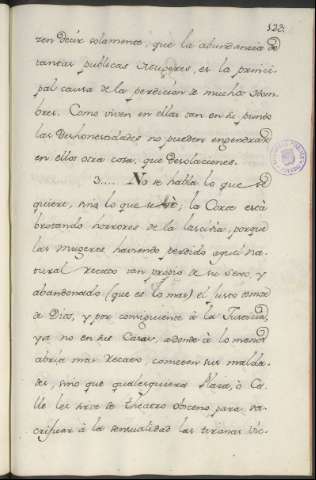 123.
ren Decir solamente, que la abundancia de
tantas publicas Mugeres, es la princi-
pal causa de la perdicion de muchos Hom-
bres. Como viven en ellas tan en su punto
las Deshonestidades no pueden engendrar
en ellos otra cosa, que Desolaciones.
3..... No se habla lo que se
quiere, sino lo que se vè; la Corte està
brotando horrores de la lascivia, porque
las Mugeres haviendo perdido aquel na-
tural Recato tan propio de su sexo, y
abandonado (que es lo mas) el justo temor
de Dios, y por consiguiente à la Justicia,
ya no en sus Casas, adonde à lo menos
abria mas Recato, cometen sus malda-
des, sino que qualesquiera Plaza, ò Ca-
lle les sirve de theatro obsceno, para sa-
crificar à la sensualidad las tiranas vic-